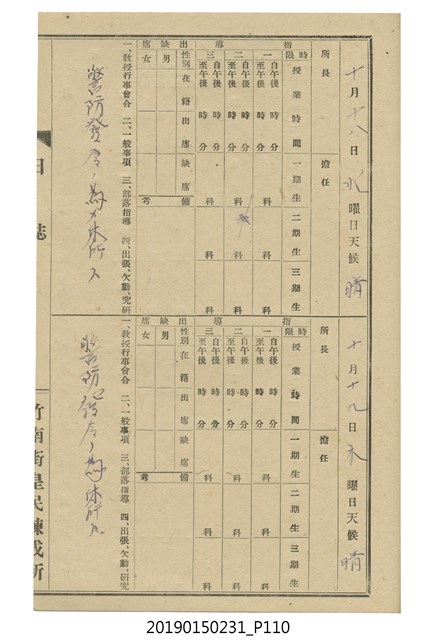 十月十八日 水曜日 天候 晴
所長 擔任
指導
時限 授業時間 一期生 二期生 三期生
一 自午後 時 分 至午後 時 分 科 科 科
二 自午後 時 分 至午後 時 分 科 科 科
三 自午後 時 分 至午後 時 分 科 科 科
出缺席
性別 在籍 出席 缺席 備考
男
女
一、教授行事會合 二、一般事項 三、部落指導 四、出張、欠勤、研究
警防發令ノ為メ休所ス
十月十九日 木曜日 天候 晴
所長 擔任
指導
時限 授業時間 一期生 二期生 三期生
一 自午後 時 分 至午後 時 分 科 科 科
二 自午後 時 分 至午後 時 分 科 科 科
三 自午後 時 分 至午後 時 分 科 科 科
出缺席
性別 在籍 出席 缺席 備考
男
女
一、教授行事會合 二、一般事項 三、部落指導 四、出張、欠勤、研究
警防發令ノ為休所ス
日誌
竹南街皇民鍊成所
20190150231_P110